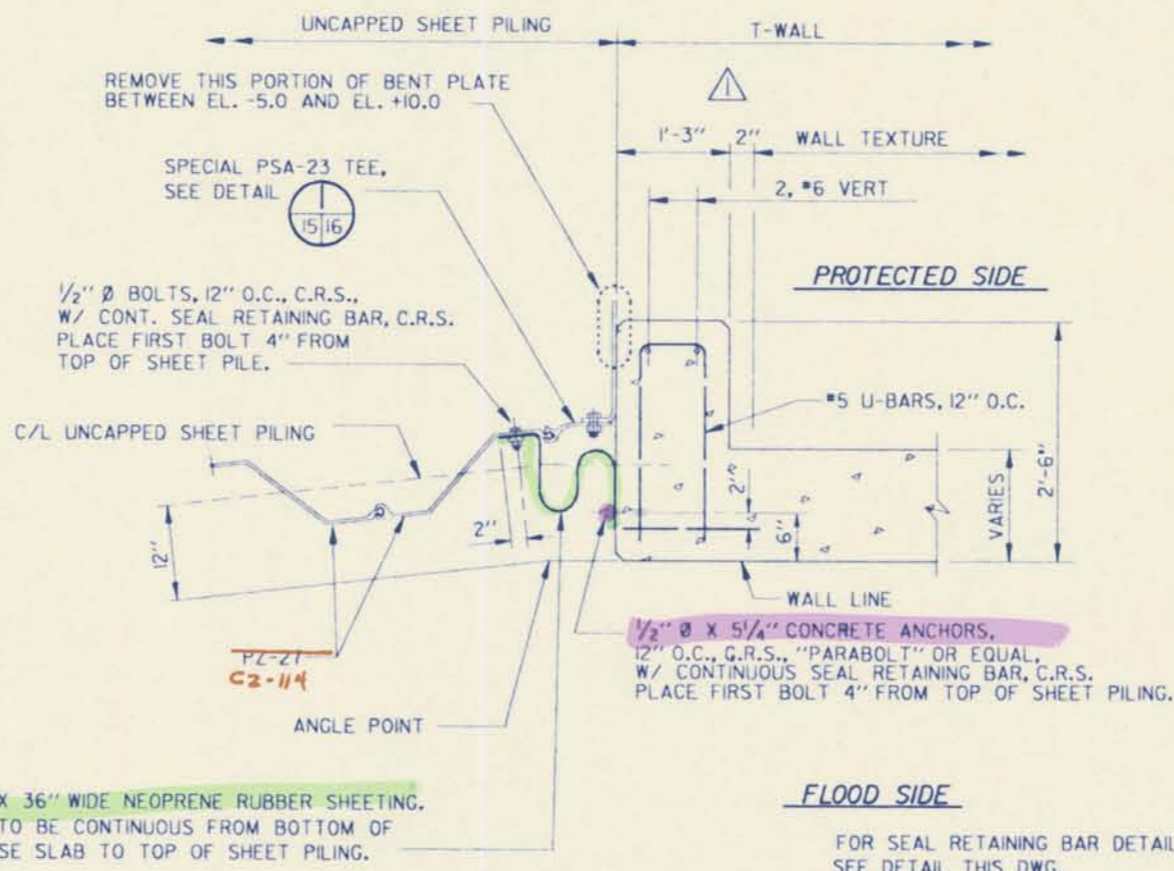 UNCAPPED SHEET PILING
T-WALL
REMOVE THIS PORTION OF BENT PLATE
BETWEEN EL. -5.0 AND EL. +10.0
1
1'-3"
2"
WALL TEXTURE
SPECIAL PSA-23 TEE,
SEE DETAIL
1
15 16
2, #6 VERT
PROTECTED SIDE
1/2" Ø BOLTS, 12" O.C., C.R.S.,
W/ CONT. SEAL RETAINING BAR, C.R.S.
PLACE FIRST BOLT 4" FROM
TOP OF SHEET PILE.
#5 U-BARS, 12" O.C.
C/L UNCAPPED SHEET PILING
2'-6"
VARIES
2"
6"
2"
12"
WALL LINE
1/2" Ø X 5 1/4" CONCRETE ANCHORS,
12" O.C., C.R.S., "PARABOLT" OR EQUAL,
W/ CONTINUOUS SEAL RETAINING BAR, C.R.S.
PLACE FIRST BOLT 4" FROM TOP OF SHEET PILING.
PZ-27
CZ-114
ANGLE POINT
X 36" WIDE NEOPRENE RUBBER SHEETING.
TO BE CONTINUOUS FROM BOTTOM OF
SE SLAB TO TOP OF SHEET PILING.
FLOOD SIDE
FOR SEAL RETAINING BAR DETAIL
SEE DETAIL THIS DWG.